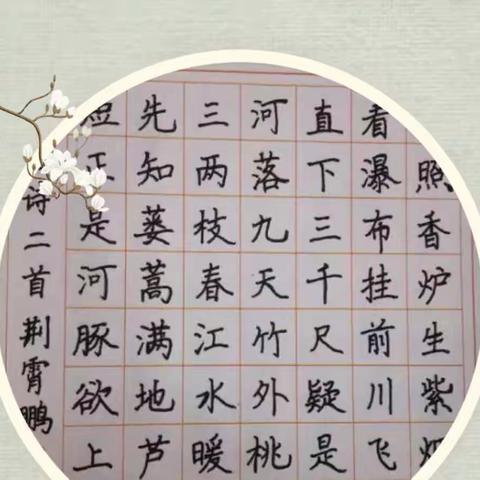 照香炉生紫烟
看瀑布挂前川飞
直下三千尺疑是
河落九天竹外桃
三两枝春江水暖
先知蒌蒿满地芦
短正是河豚欲上
诗二首荆霄鹏